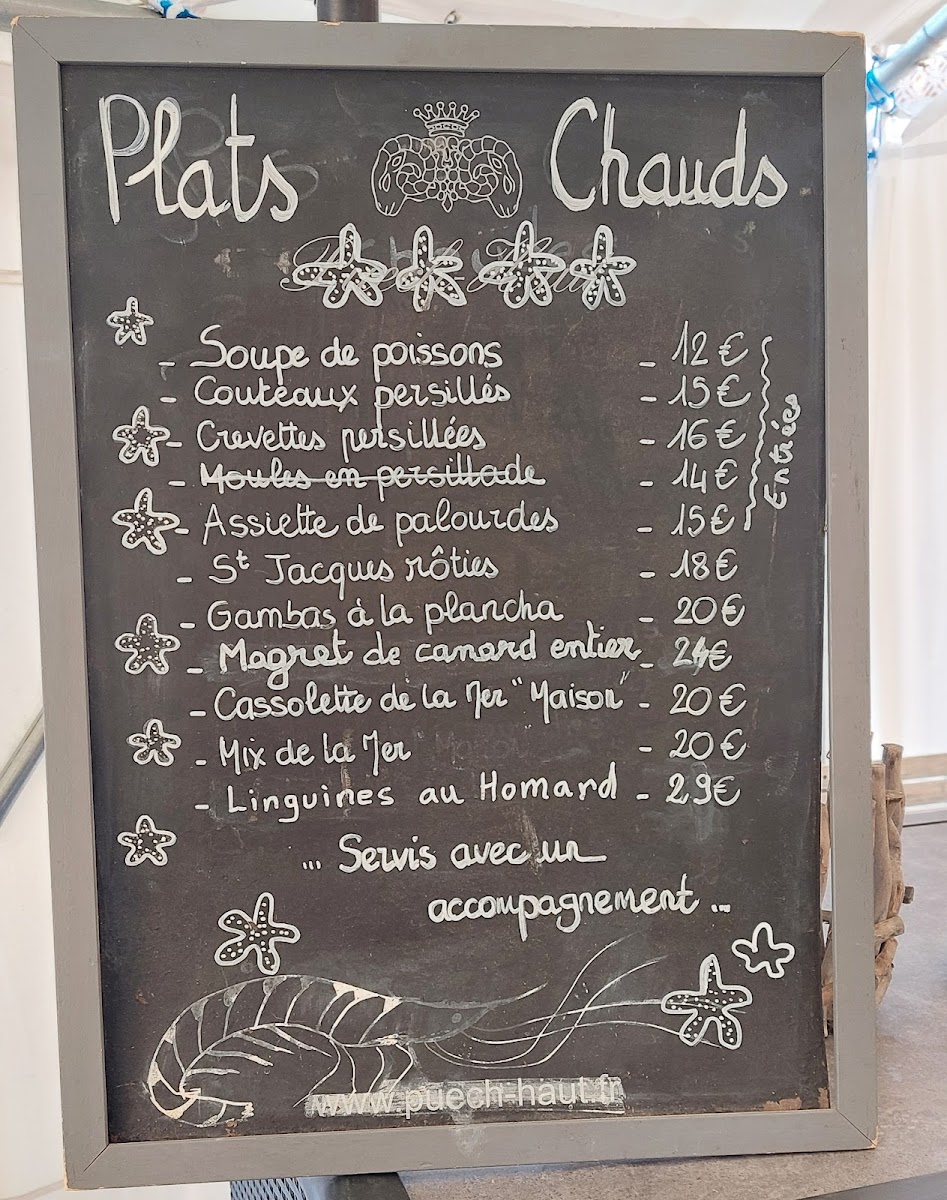 Plats Chauds
- Soupe de poissons - 12 €
- Couteaux persillés - 15 €
- Crevettes persillées - 16 €
- Moules en persillade - 14 €
- Assiette de palourdes - 15 €
Entrées
- St Jacques rôties - 18 €
- Gambas à la plancha - 20 €
- Magret de canard entier - 24 €
- Cassolette de la Mer "Maison" - 20 €
- Mix de la Mer - 20 €
- Linguines au Homard - 29 €
... Servis avec un
accompagnement ...
www.puech-haut.fr